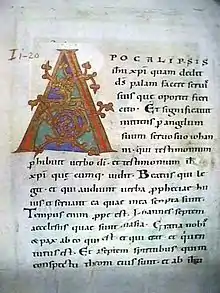 I 1-20
APOCALIPSIS
ihu xpi quam dedit
ds palam facere servi
suis que oportet fieri
cito Et significavit
mittens p angelum
suum servo suo iohan
ni qui testimonium
phibuit verbo di et testimonium ih
xpi que cumq vidit Beatus qui le
git et qui audiunt verba prophetiae hui
us et servant ea quae in ea scripta sunt
Tempus enim ppe est Iohannes septem
aecclesiis quae sunt in asia Gratia vobis
et pax ab eo qui est et qui erat et qui ven
turus est Et septem spiritibus qui in
conspectu throni eius sunt et ab ihu